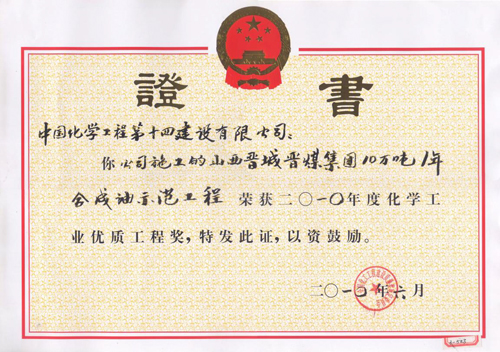 證書
中国化学工程第十四建设有限公司：
你公司施工的山西晋城晋煤集团10万吨/年
合成油示范工程 荣获二〇一〇年度化学工
业优质工程奖，特发此证，以资鼓励。
二〇一〇年六月